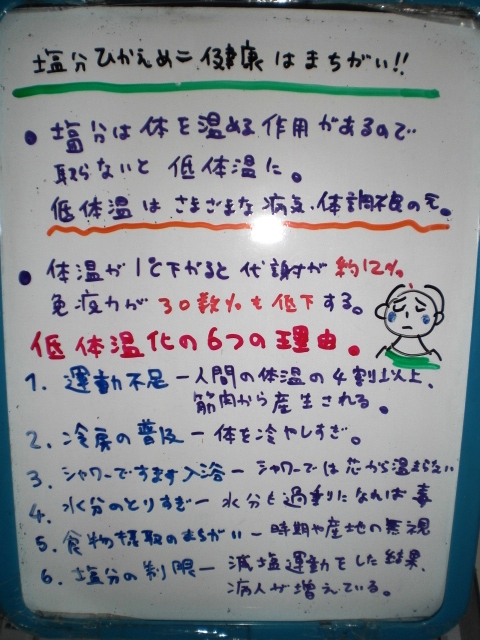 塩分ひかえめ＝健康はまちがい!!
● 塩分は体を温める作用があるので
取らないと低体温に。
低体温はさまざまな病気、体調不良の元。
● 体温が1℃下がると代謝が約12%
免疫力が30数%も低下する。
低体温化の6つの理由。
1. 運動不足－人間の体温の4割以上、
筋肉から産生される。
2. 冷房の普及－体を冷やしすぎ。
3. シャワーですます入浴－シャワーでは芯から温まらない
4. 水分のとりすぎ－水分も過剰になれば毒
5. 食物摂取のまちがい－時期や産地の無視
6. 塩分の制限－減塩運動をした結果、
病人が増えている。